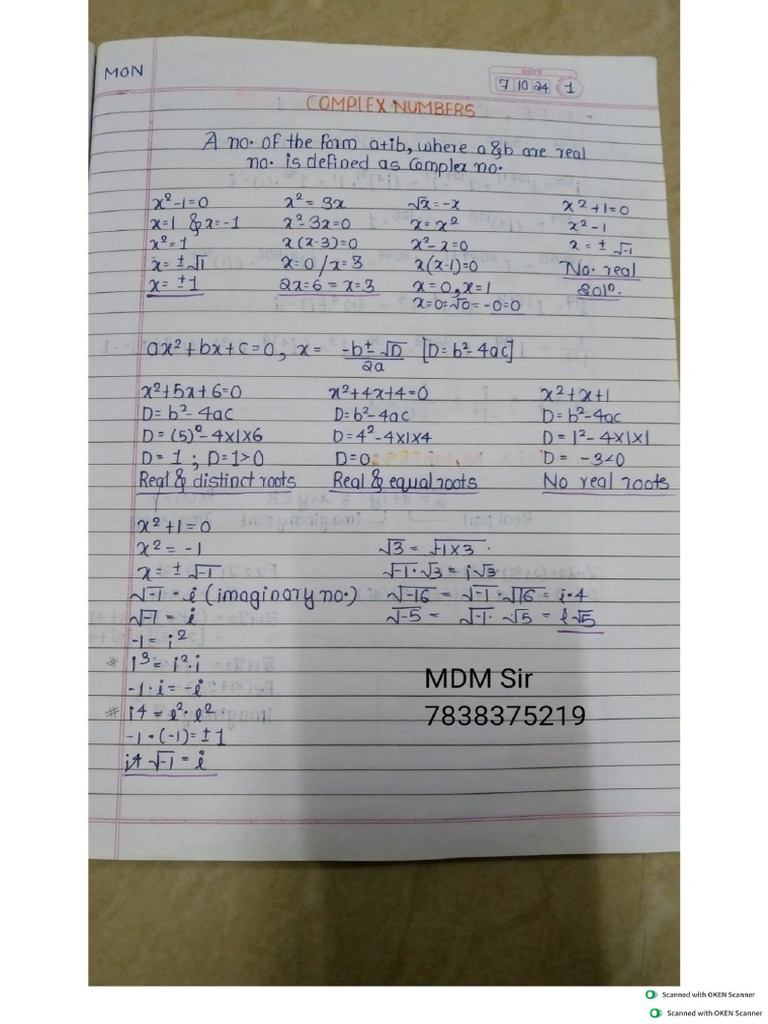 MON
DATE
7 10 24 1
COMPLEX NUMBERS
A no. of the form a+ib, where a & b are real
no. is defined as complex no.
x²-1=0
x=1 & x=-1
x²=1
x=±√1
x=±1
x² = 3x
x²-3x=0
x(x-3)=0
x=0/x=3
2x=6=x=3
√x=-x
x=x²
x²-x=0
x(x-1)=0
x=0, x=1
x=0=√0=-0=0
x²+1=0
x²-1
x=±√-1
No. real
solⁿ.
ax²+bx+c=0, x= -b±√D/2a [D=b²-4ac]
x²+5x+6=0
D=b²-4ac
D=(5)²-4x1x6
D=1; D=1>0
Real & distinct roots
x²+4x+4=0
D=b²-4ac
D=4²-4x1x4
D=0
Real & equal roots
x²+x+1
D=b²-4ac
D=1²-4x1x1
D= -3<0
No real roots
x²+1=0
x²=-1
x=±√-1
√-1=i (imaginary no.)
√-1=i
-1=i²
* i³=i²·i
-1·i=-i
* i4=i²·i²
-1·(-1)=±1
i4 √-1=i
√3=√-1x3.
√-1·√3=i√3
√-16=√-1·√16=i·4
√-5=√-1·√5=i√5
MDM Sir
7838375219
Scanned with OKEN Scanner
Scanned with OKEN Scanner